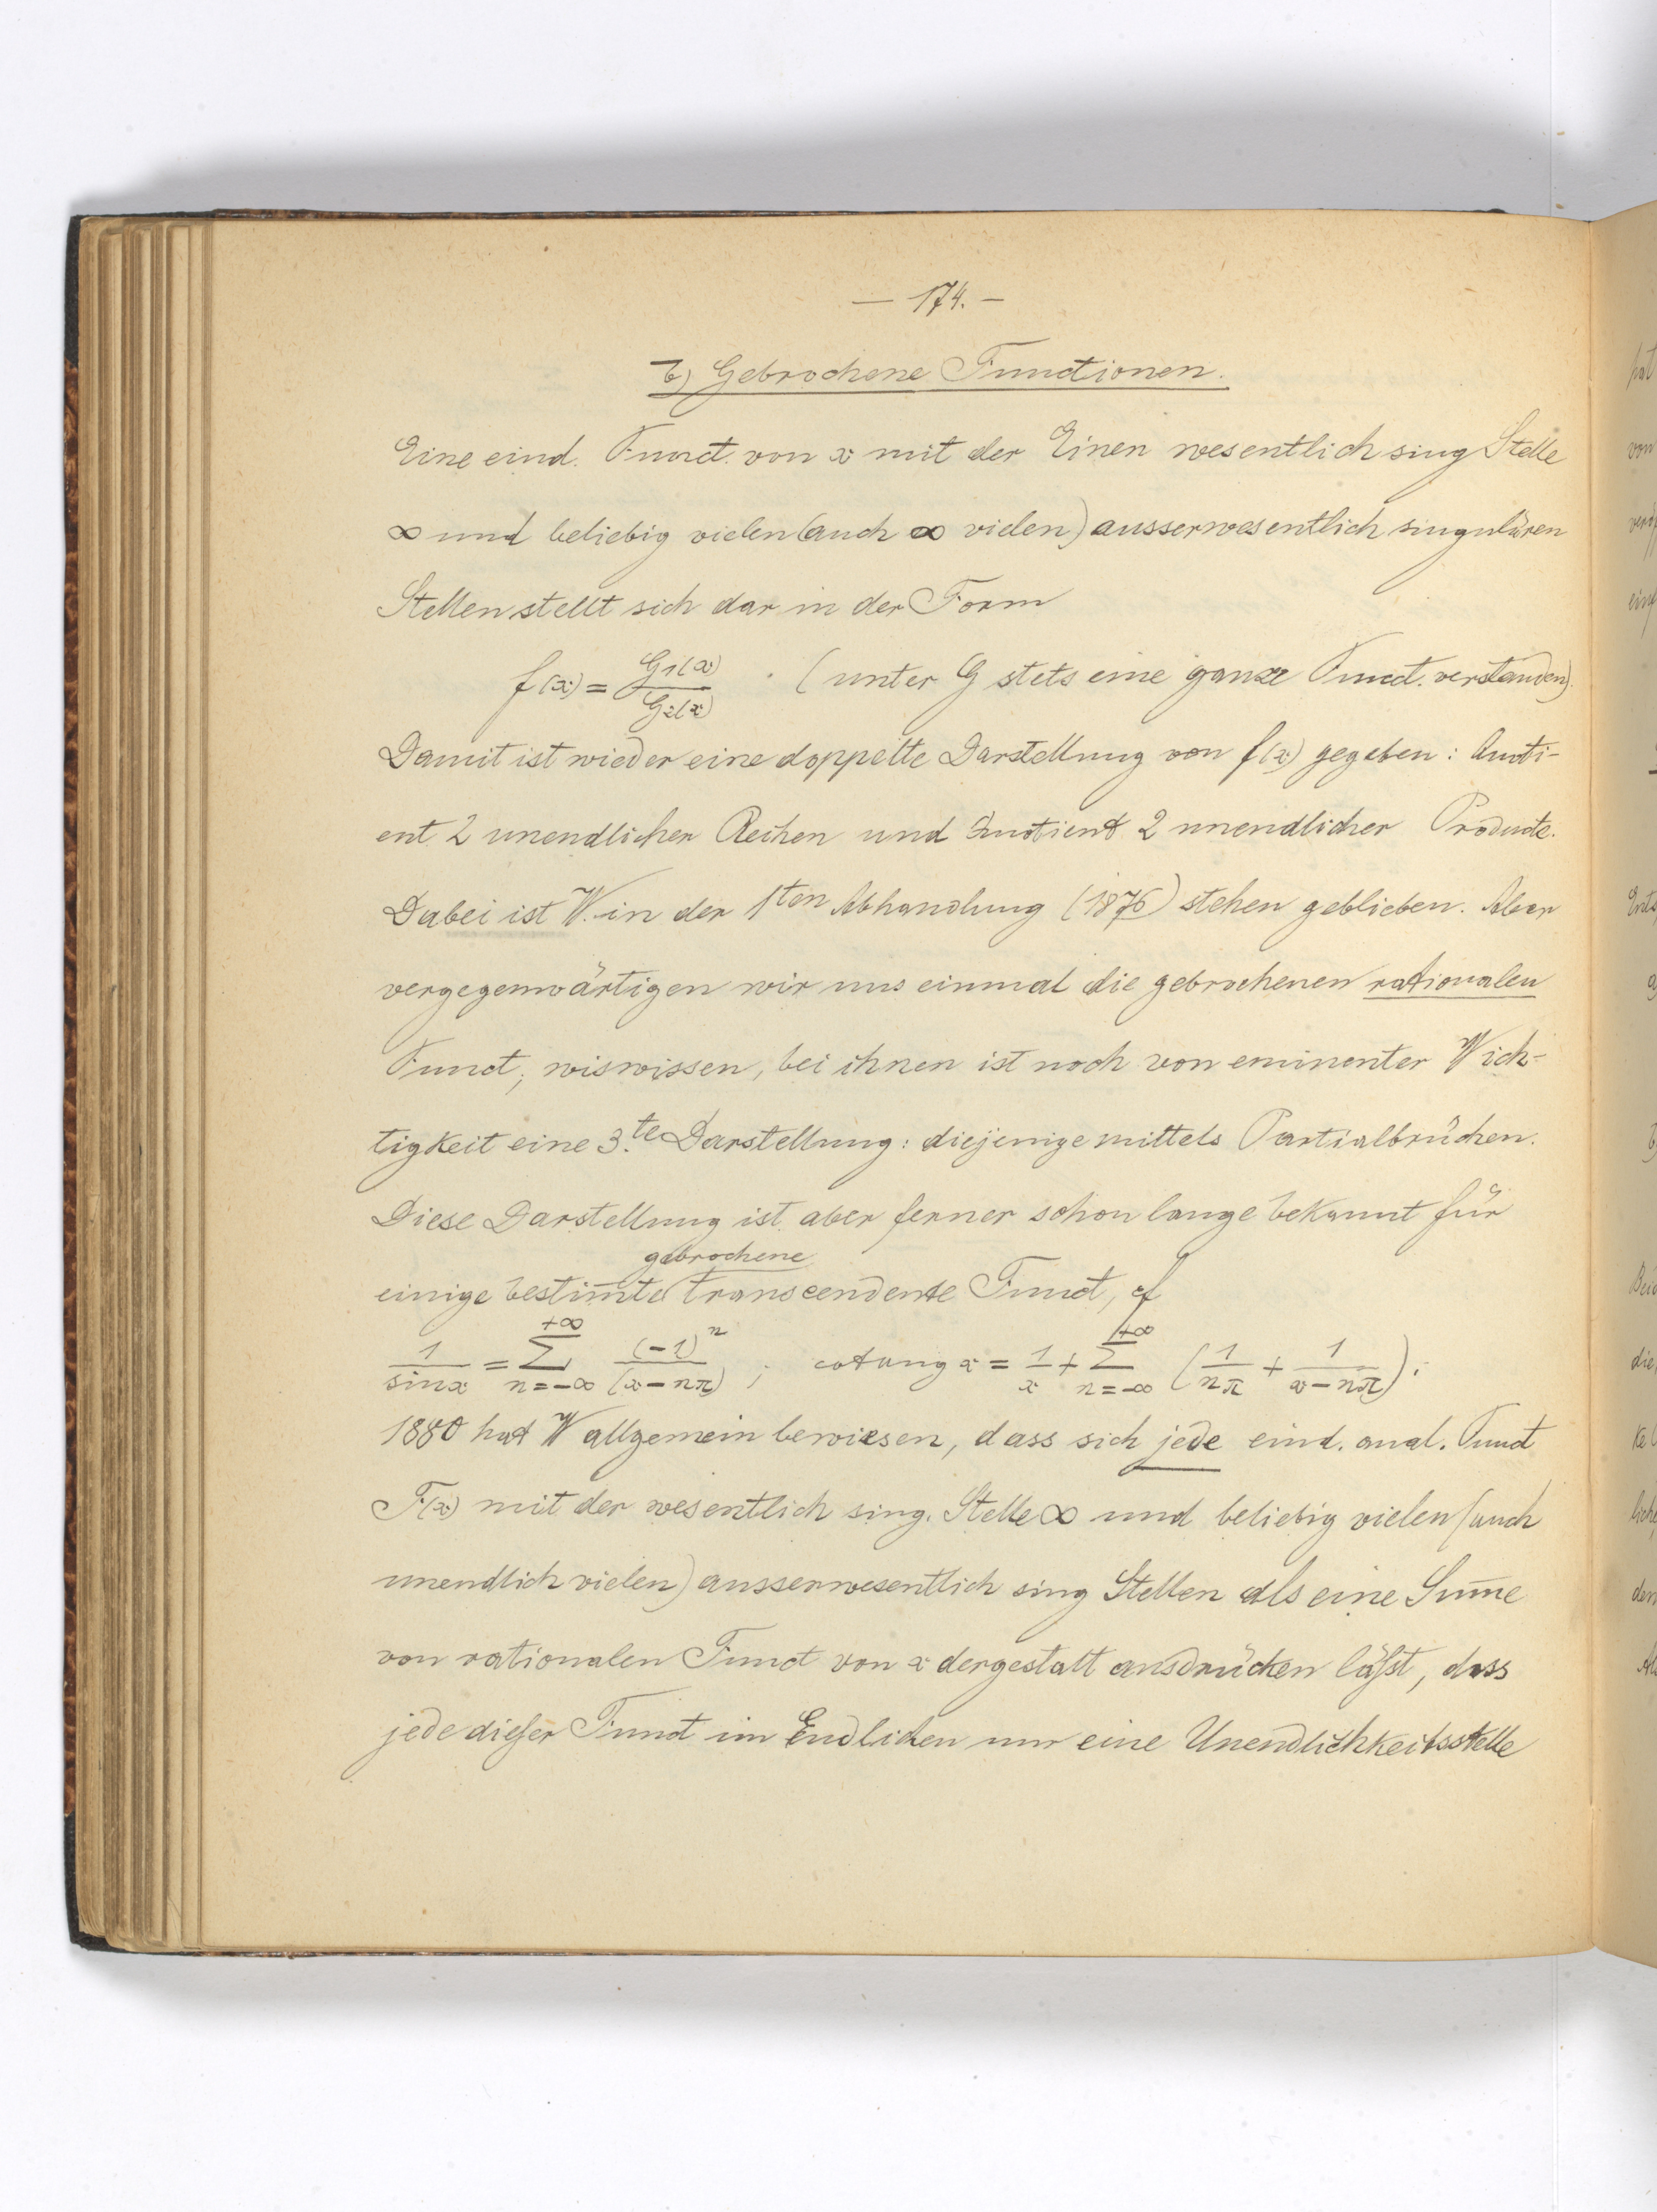 — 174. —
b) Gebrochene Functionen.
Eine eind. Funct. von x mit der Einen wesentlich sing Stelle
∞ und beliebig vielen (auch ∞ vielen) ausserwesentlich singulären
Stellen stellt sich dar in der Form
f(x) = G1(x)/G2(x) . (unter G stets eine ganze Funct. verstanden).
Damit ist wieder eine doppelte Darstellung von f(x) gegeben: Quoti-
ent 2 unendlicher Reihen und Quotient 2 unendlicher Producte.
Dabei ist W. in der 1ten Abhandlung (1876) stehen geblieben. Aber
vergegenwärtigen wir uns einmal die gebrochenen rationalen
Funct; wir wissen, bei ihnen ist noch von eminenter Wich-
tigkeit eine 3.te Darstellung: diejenige mittels Partialbrüchen.
Diese Darstellung ist aber ferner schon lange bekannt für
gebrochene
einige bestim̅te transcendente Funct, cf
1/sin x = Σ_{n=-∞}^{+∞} (-1)^n/(x-nπ) ; cotang x = 1/x + Σ_{n=-∞}^{+∞} (1/nπ + 1/(x-nπ)).
1880 hat W allgemein bewiesen, dass sich jede eind. anal. Funct
F(x) mit der wesentlich sing. Stelle ∞ und beliebig vielen (auch
unendlich vielen) ausserwesentlich sing Stellen als eine Sum̅e
von rationalen Funct von x dergestalt ausdrücken läſst, dass
jede dieſer Funct im Endlichen nur eine Unendlichkeitsstelle